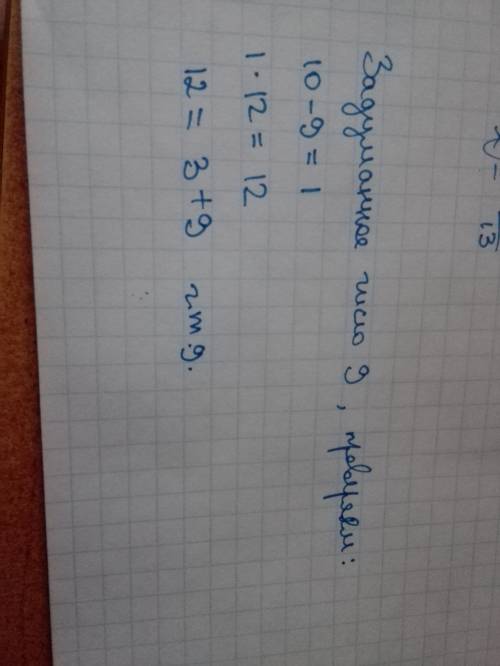 13
Задуманное число 9, проверяем:
10 - 9 = 1
1 · 12 = 12
12 = 3 + 9 ч.т.д.